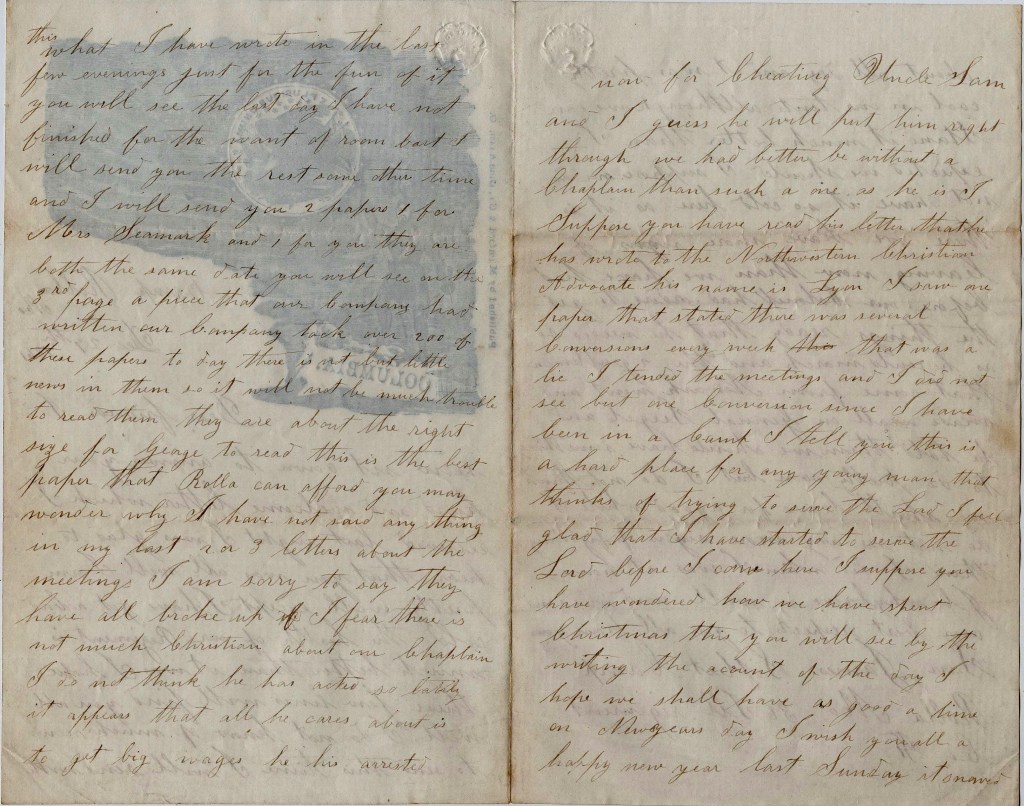 this
what I have wrote in the last
few evenings just for the fun of it
you will see the last say I have not
finished for the want of room but I
will send you the rest some other time
and I will send you 2 papers 1 for
Mrs Seamark and 1 for you they are
both the same date you will see on the
3rd page a piece that our Company had
written our Company took over 200 of
these papers to day there is not but little
news in them so it will not be much trouble
to read them they are about the right
size for Geoge to read this is the best
paper that Rolla can afford you may
wonder why I have not said any thing
in my last 2 or 3 letters about the
meetings I am sorry to say they
have all broke up I fear there is
not much Christian about our Chaplain
I do not think he has acted so lately
it appears that all he cares about is
to get big wages he his arrested
COLUMBIA
now for Cheating Uncle Sam
and I guess he will put him right
through we had better be without a
Chaplain than such a one as he is I
Suppose you have read his letter that he
has wrote to the Northwestern Christian
Advocate his name is Lyon I saw one
paper that stated there was several
Conversions every week that was a
lie I tended the meetings and I did not
see but one Conversion since I have
been in a Camp I tell you this is
a hard place for any young man that
thinks of trying to serve the Lord I feel
glad that I have started to serve the
Lord before I come here I suppose you
have wondered how we have spent
Christmas this you will see by the
writing the account of the day I
hope we shall have as good a time
on Newyears day I wish you all a
happy new year last Sunday it snowed